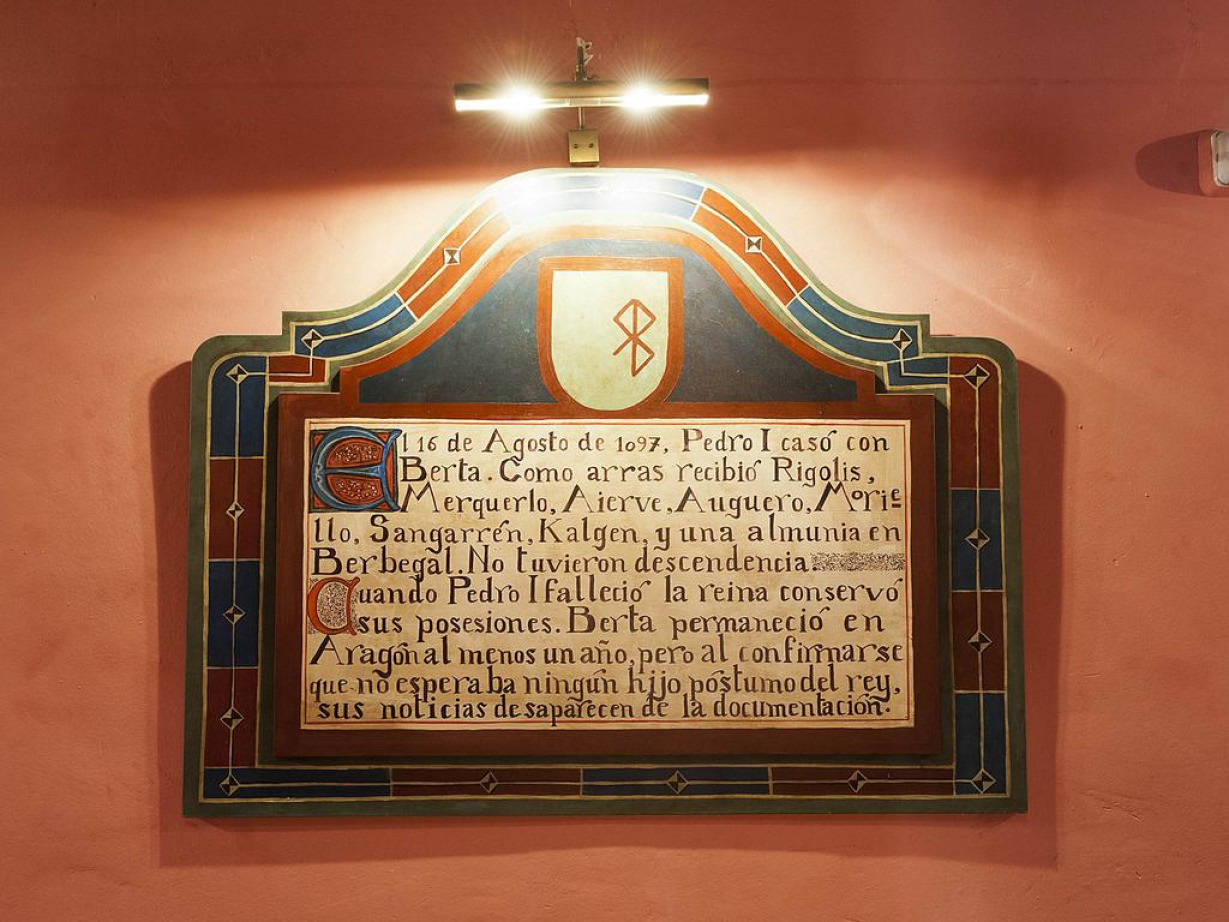 El 16 de Agosto de 1097, Pedro I casó con
Berta. Como arras recibió Rigolis,
Merquerlo, Aierve, Auguero, Mori=
llo, Sangarrén, Kalgen, y una almunia en
Berbegal. No tuvieron descendencia.
Cuando Pedro I falleció la reina conservó
sus posesiones. Berta permaneció en
Aragón al menos un año, pero al confirmarse
que no esperaba ningún hijo póstumo del rey,
sus noticias desaparecen de la documentación.